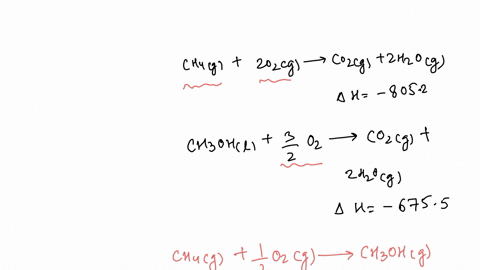 CH4(g) + 2O2(g) → CO2(g) + 2H2O(g)
Δ H = -805.2
CH3OH(l) + 3/2 O2 → CO2(g) +
2H2O(g)
Δ H = -675.5
CH4(g) + 1/2 O2(g) → CH3OH(g)